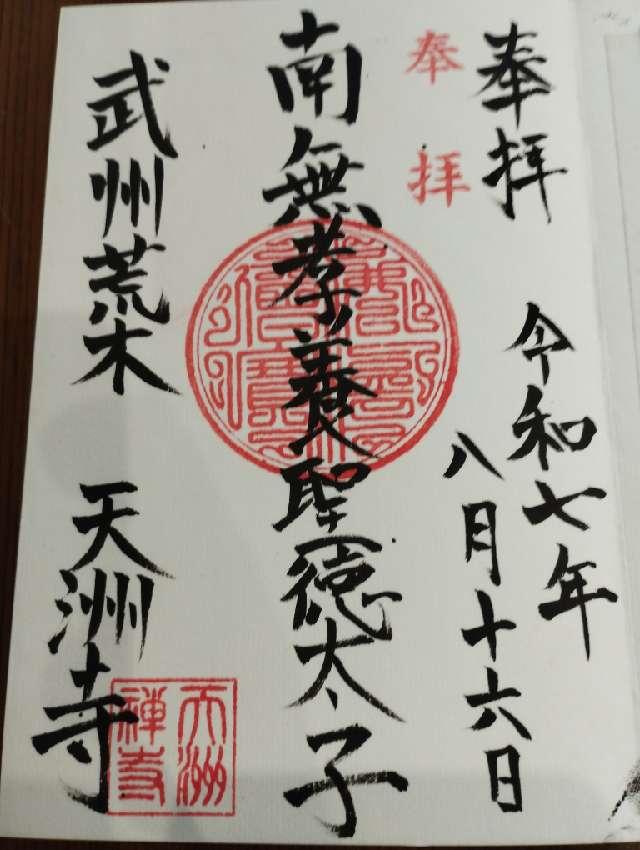 奉拝
令和七年
八月十六日
奉拝
南無孝養聖徳太子
武州荒木 天洲寺
天洲
禅寺